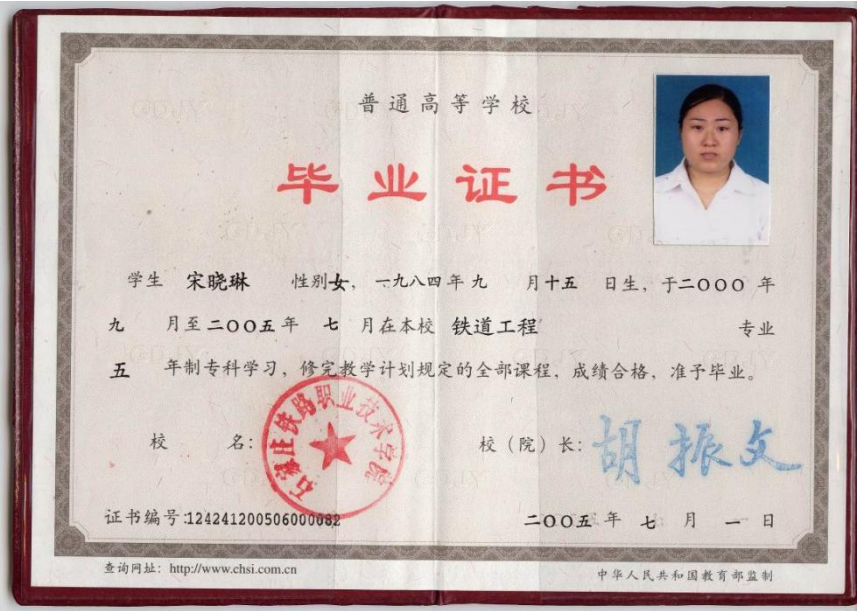 普通高等学校
毕业证书
学生 宋晓琳 性别女，一九八四年九 月十五 日生，于二OOO 年
九 月至二OO五年 七 月在本校 铁道工程 专业
五 年制专科学习，修完教学计划规定的全部课程，成绩合格，准予毕业。
校 名：
石家庄铁路职业技术学院
校（院）长：
胡振文
证书编号:124241200506000082
二OO五年 七 月 一 日
查询网址：http://www.chsi.com.cn
中华人民共和国教育部监制